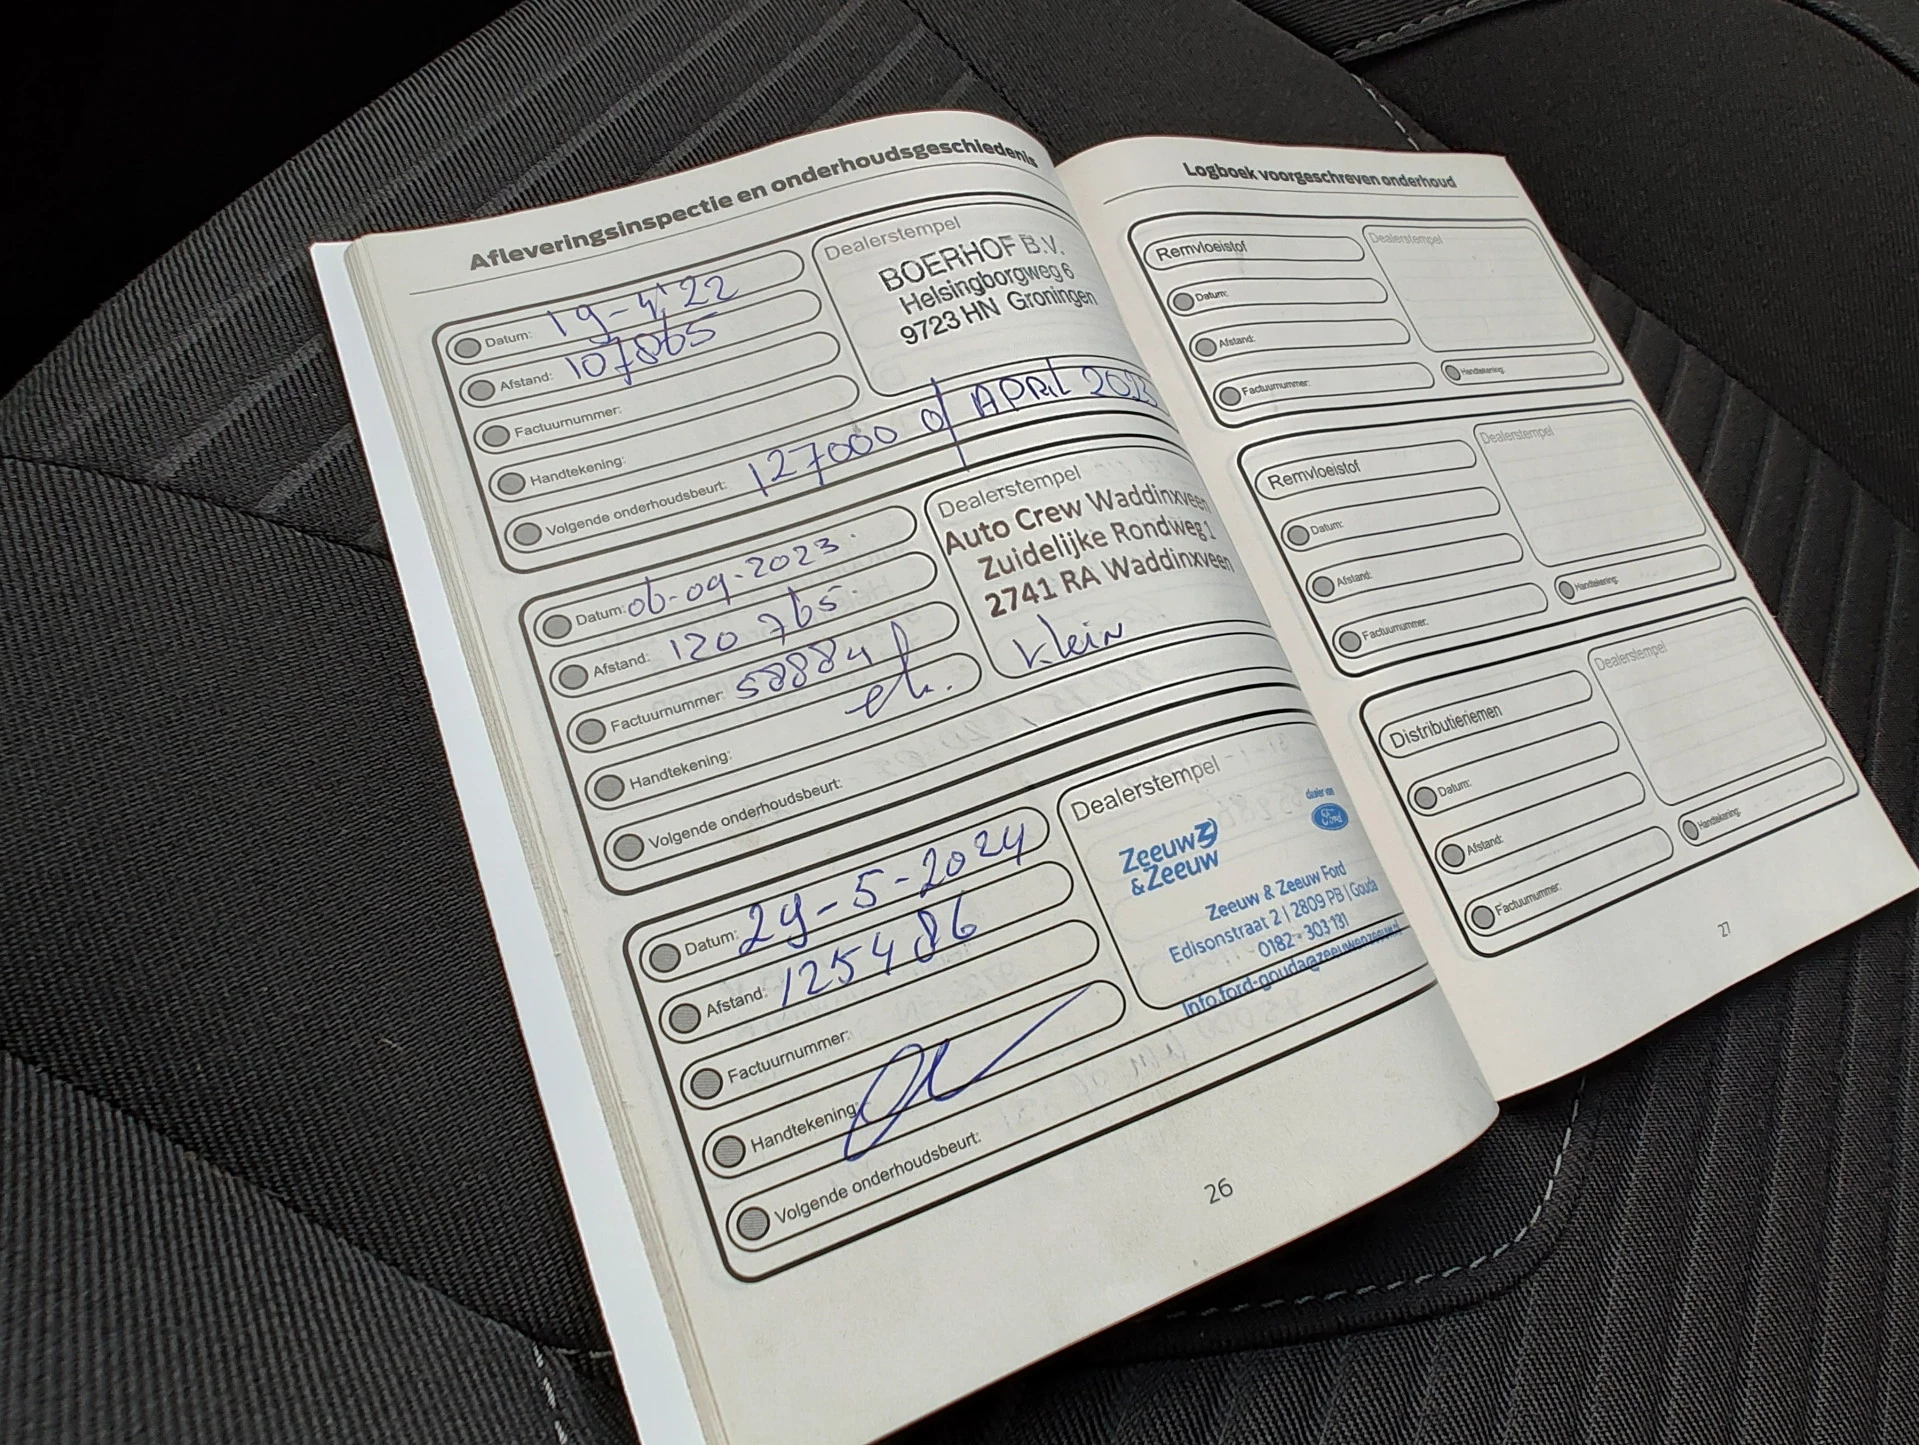 Afleveringsinspectie en onderhoudsgeschiedenis
Datum: 19-4'22
Afstand: 107865
Factuurnummer:
Handtekening:
Volgende onderhoudsbeurt: 127000 of APRIL 2023
Dealerstempel
BOERHOF B.V.
Helsingborgweg 6
9723 HN Groningen
Datum: 06-09-2023.
Afstand: 120765.
Factuurnummer: 588841
Handtekening:
Volgende onderhoudsbeurt:
Dealerstempel
Auto Crew Waddinxveen
Zuidelijke Rondweg 1
2741 RA Waddinxveen
Klein
Datum: 29-5-2024
Afstand: 125486
Factuurnummer:
Handtekening:
Volgende onderhoudsbeurt:
Dealerstempel
dealer van
Ford
Zeeuw
& Zeeuw
Zeeuw & Zeeuw Ford
Edisonstraat 2 | 2809 PB | Gouda
0182 - 303 131
Info.ford-gouda@zeeuwenzeeuw.nl
26
Logboek voorgeschreven onderhoud
Remvloeistof
Datum:
Afstand:
Factuurnummer:
Dealerstempel
Handtekening:
Remvloeistof
Datum:
Afstand:
Factuurnummer:
Dealerstempel
Handtekening:
Distributieriemen
Datum:
Afstand:
Factuurnummer:
Dealerstempel
Handtekening:
27